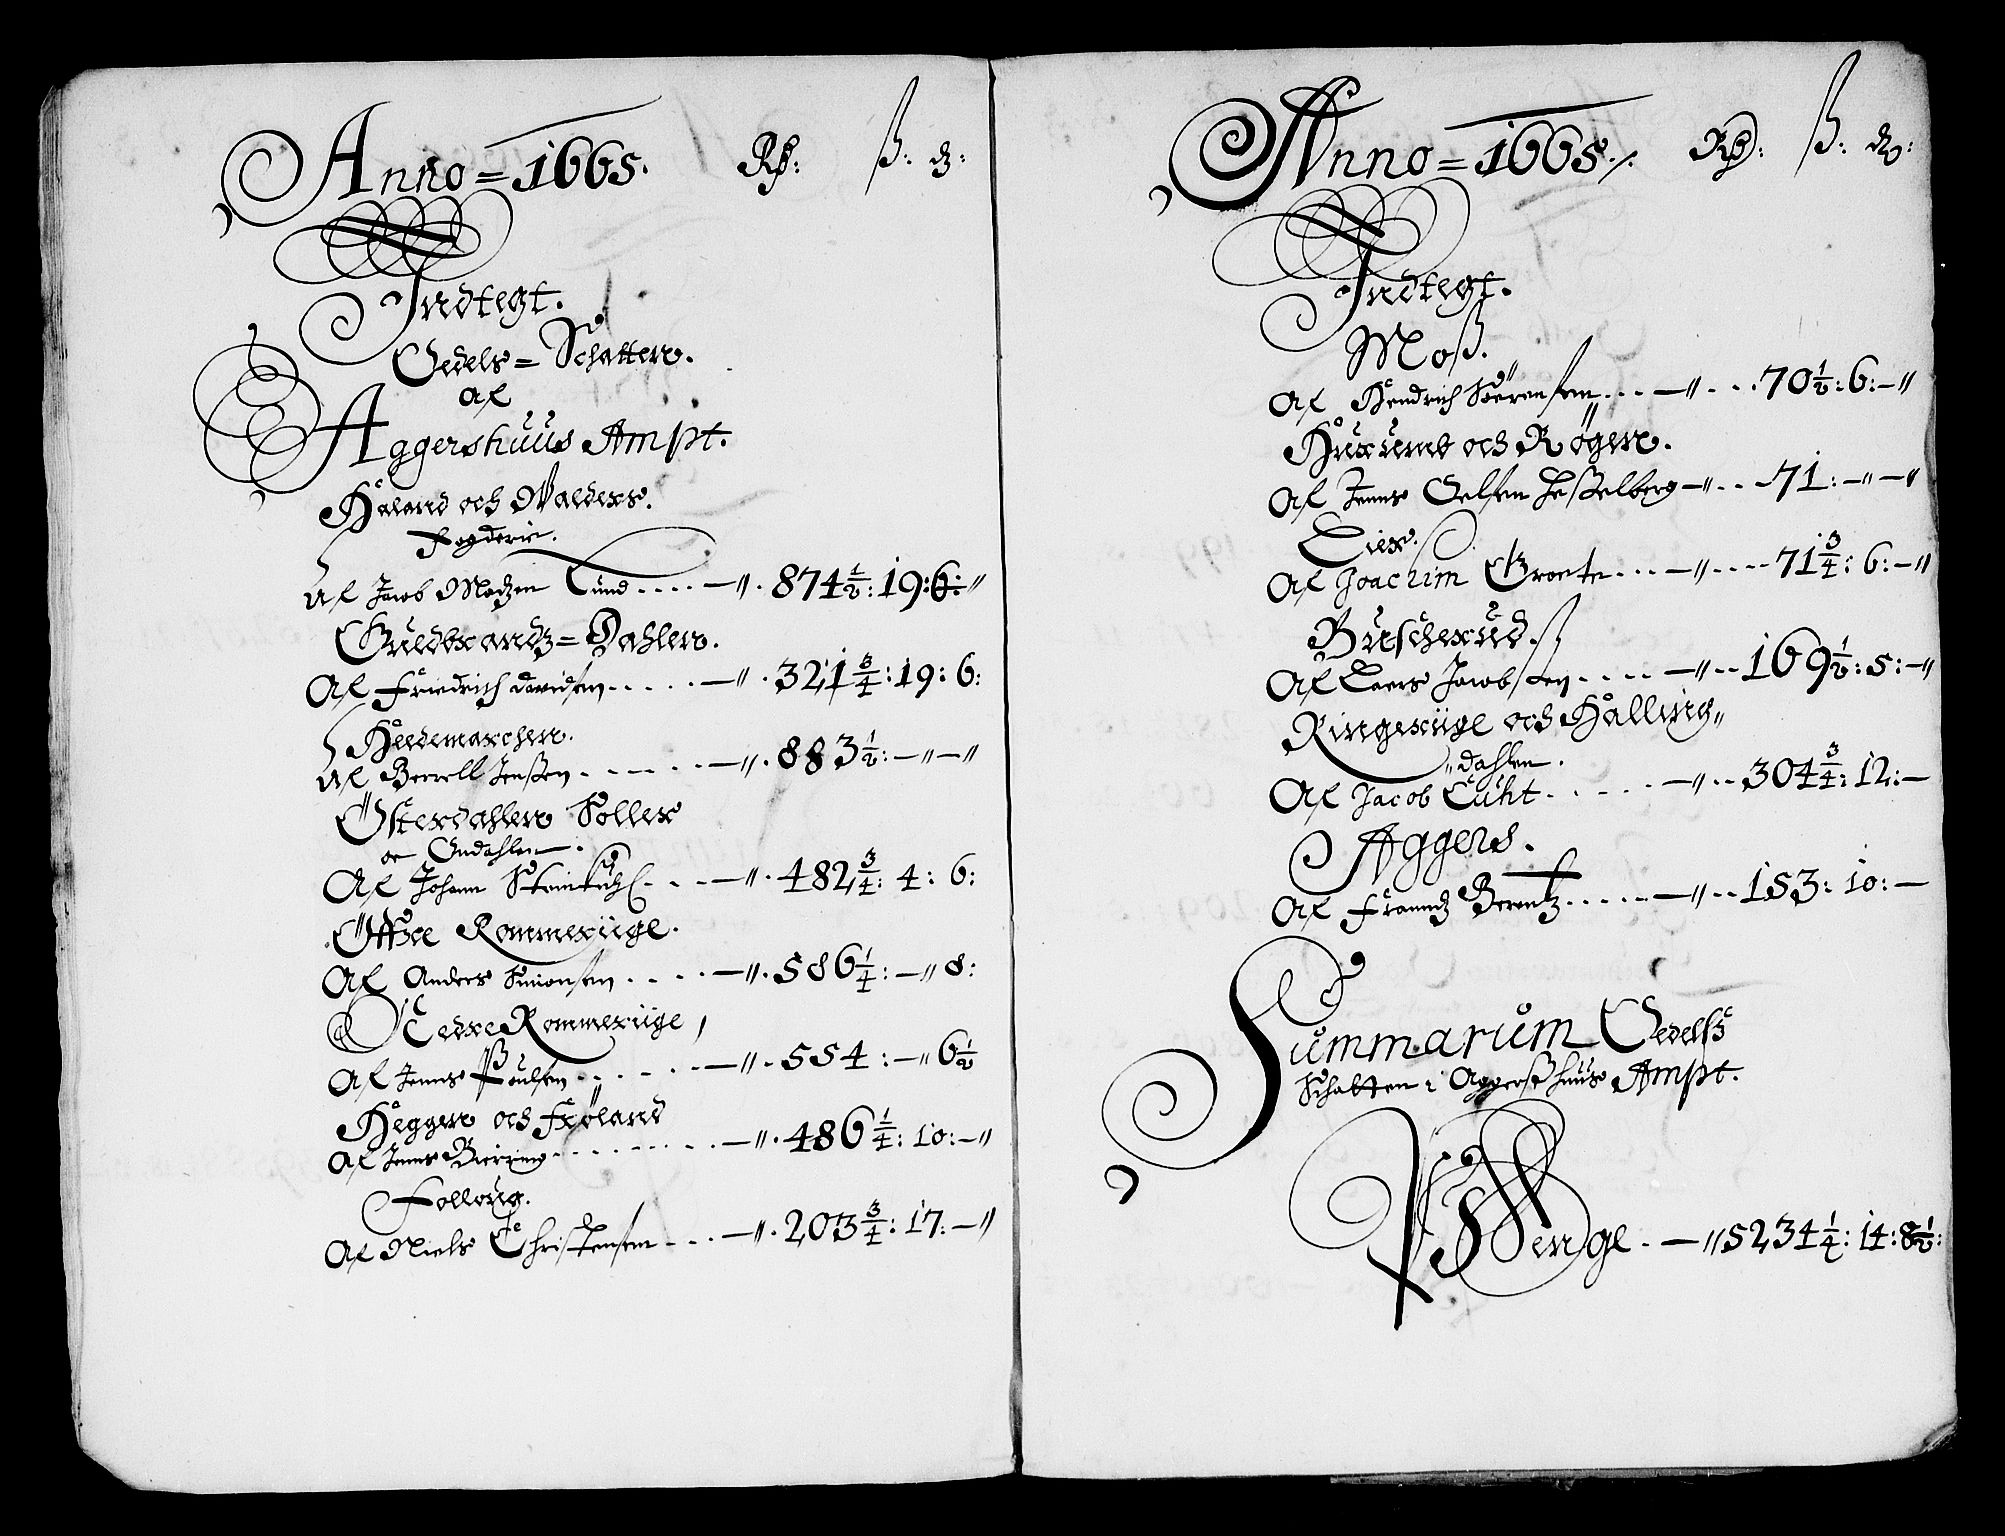 Anno = 1665. Rß: ß: ₰:
Indtegt.
Oedels = Schatten.
Af
Aggershuus Ampt.
Haland och Walders.
Fogderie.
Af Jacob Madzen Lund .... —〃. 874½: 19: 6:〃
Guldbrandz = Dahlen.
Af Friedrich Davidsen ..... —〃. 321¾: 19: 6:
Hedemarchen.
Af Berrell Jenßen ..... —〃. 883½: —〃—〃
Österdahlen Soller
oc Ondahlen.
Af Johann Steinkuhl ... —〃. 482¾: 4: 6:
Öffre Rommeriige.
Af Anders Simonsen .... —〃. 586¼: —〃 8:
Nedre Rommeriige,
Af Jenns Poulsen ..... —〃. 554: —〃 6½
Heggen och Fröland
Af Jenns Bierring ........ —〃. 486¼: 10: —〃
Folloug.
Af Niels Christensen ... —〃. 203¾: 17: —〃
Anno = 1665. Rß: ß: ₰:
Indtegt.
Moß.
Af Hendrich Sörensen ... —〃 ... 70½: 6: —〃
Huxumb och Rögen.
Af Jenns Oelsen Heßelberg —〃 ... 71: —〃 —〃
Lier.
Af Joachim Groete ... —〃 .... 71¾: 6: —〃
Buscherud.
Af Laers Jacobsen .... —〃 .. 169½: 5: —〃
Ringeriige och Halling〃
〃dahlen.
Af Jacob Luht ..... —〃 .. 304¾: 12: —
Aggers.
Af Franndz Berentz ..... —〃 .. 153: 10: —
Summarum Oedelß
Schatten i Aggerßhuus Ampt.
Penge. —〃 5234¼: 14: 8½: